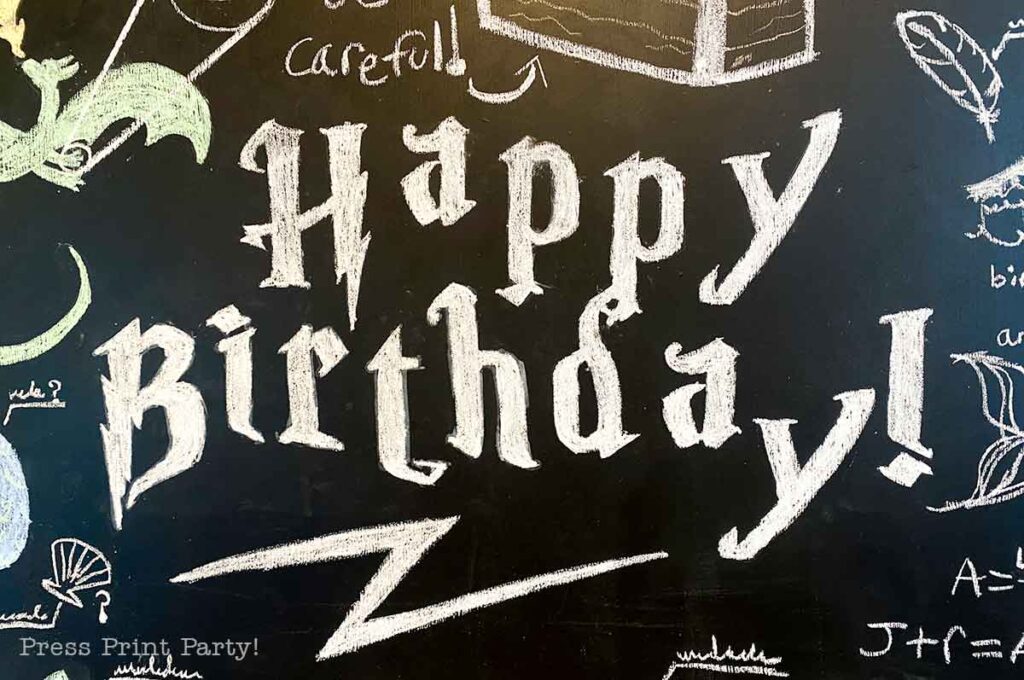 be
careful!
Happy
Birthday!
?
bi
ar
?
A=
J+r=A
Press Print Party!